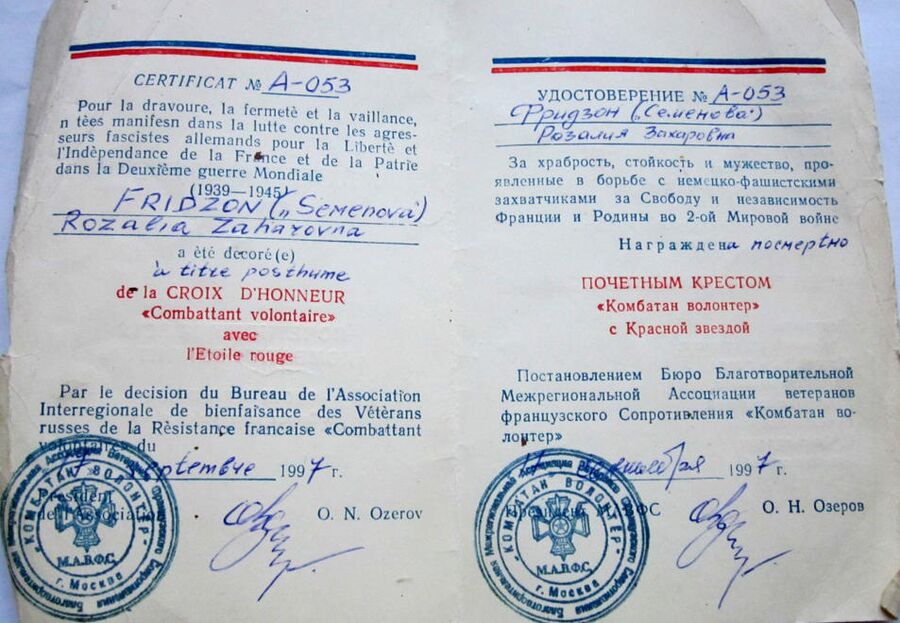 CERTIFICAT № A-053
Pour la dravoure, la fermetè et la vaillance,
n tèes manifesn dans la lutte contre les agres-
seurs fascistes allemands pour la Libertè et
l'Indèpendance de la France et de la Patrie
dans la Deuxième guerre Mondiale
(1939—1945)
FRIDZON („Semenova")
Rozalia Zaharovna
a ètè dècorè(e)
à titre posthume
de la CROIX D'HONNEUR
«Combattant volontaire»
avec
l'Etoile rouge
Par le decision du Bureau de l'Association
Interregionale de bienfaisance des Vétèrans
russes de la Rèsistance francaise «Combattant
volontaire» du
7 septembre 1997 г.
Prèsident
de l'Association
O. N. Ozerov
КОМБАТАН ВОЛОНТЕР
М.А.В.Ф.С.
г. Москва
УДОСТОВЕРЕНИЕ № A-053
Фридзон (Семенова)
Розалия Захаровна
За храбрость, стойкость и мужество, про-
явленные в борьбе с немецко-фашистскими
захватчиками за Свободу и независимость
Франции и Родины во 2-ой Мировой войне
Награждена посмертно
ПОЧЕТНЫМ КРЕСТОМ
«Комбатан волонтер»
с Красной звездой
Постановлением Бюро Благотворительной
Межрегиональной Ассоциации ветеранов
французского Сопротивления «Комбатан во-
лонтер»
1997 г.
Президент МАВФС
О. Н. Озеров
КОМБАТАН ВОЛОНТЕР
М.А.В.Ф.С.
г. Москва